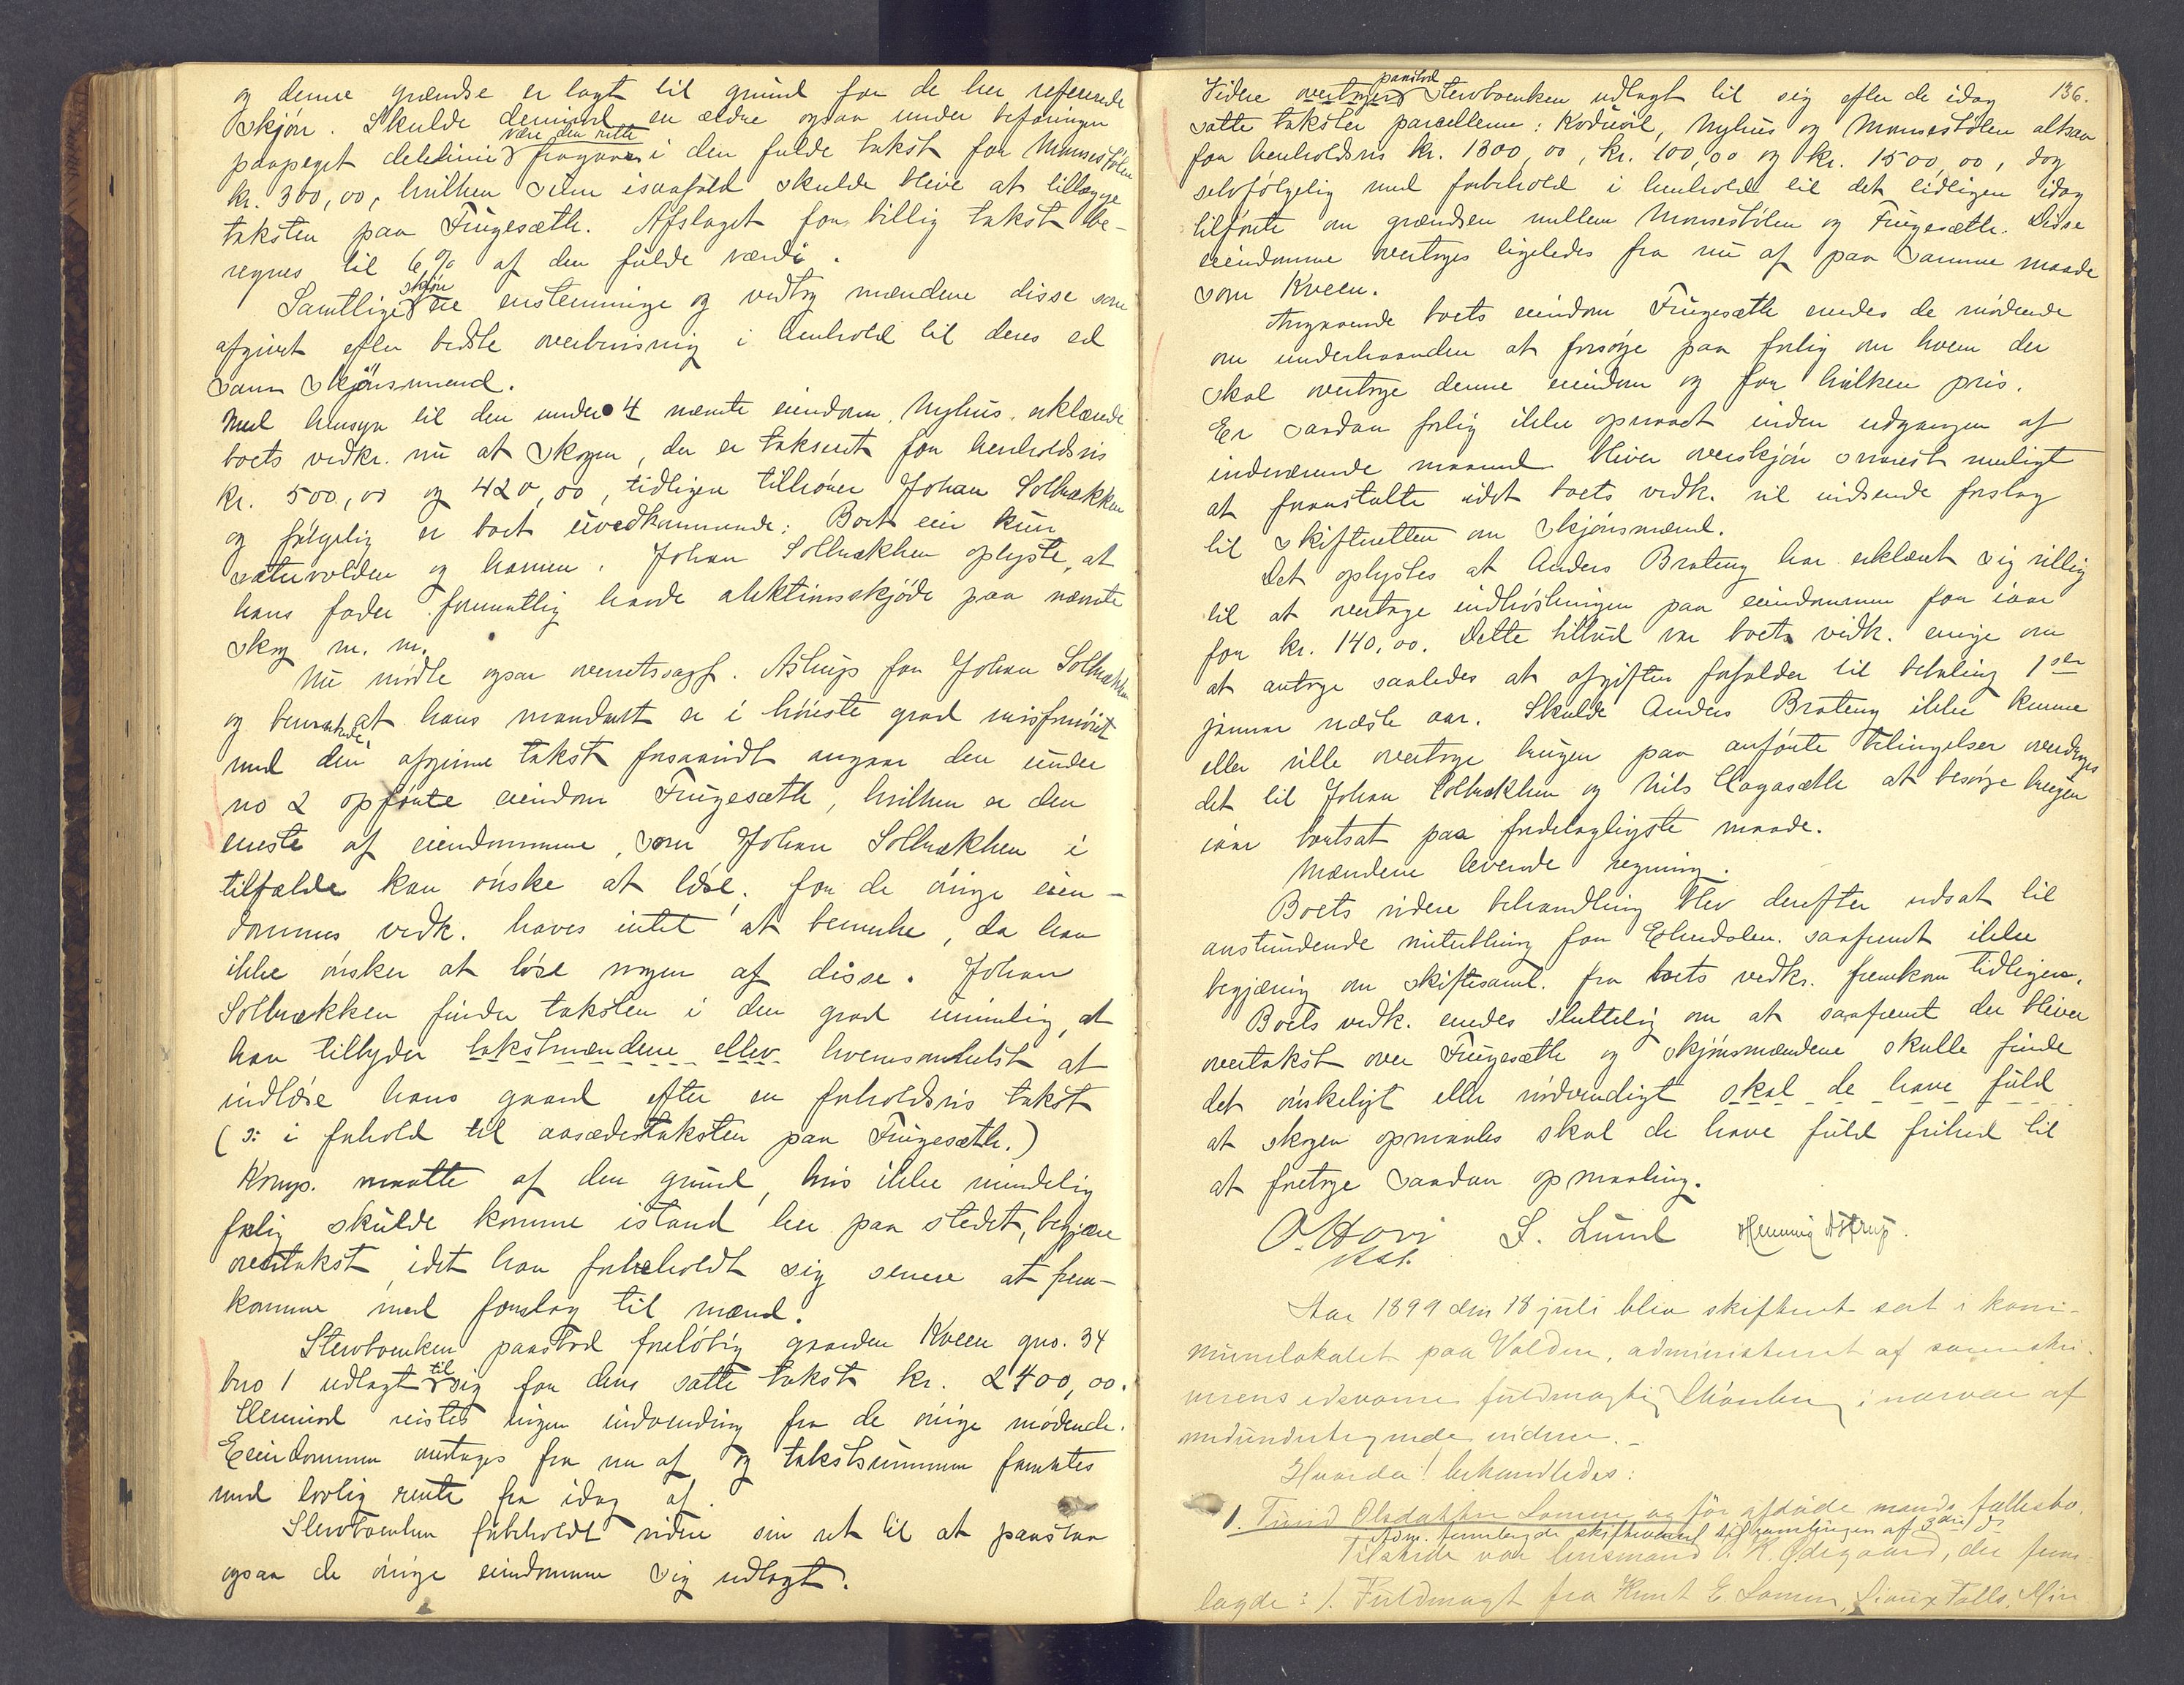 og denne grændse er lagt til grund for de her refererede
skjøn. Skulde derimod en ældre ogsaa under befaringen
paapeget delelinie være den rette fragaar i den fulde takst for Monsestølen
kr. 300,00, hvilken sum isaafald skulde blive at tillægge
taksten paa Frugesæth. Afslaget for billig takst be-
regnes til 6 % af den fulde værdi.
Samtlige skjøn ere enstemmige og vedtog mændene disse som
afgivet efter bedste overbevisning i henhold til deres ed
som skjønsmænd.
Med hensyn til den under 4 nævnte eiendom Nyhus erklærede
boets vedkr. nu at skogen, der er taksert for henholdsvis
kr. 500,00 og 420,00, tidligere tilhører Johan Solbrækken
og følgelig er boet uvedkommende: Boet eier kun
sætervolden og havnen. Johan Solbrækken oplyste, at
hans fader formentlig havde auktionsskjøde paa nævnte
skog m. m.
Nu mødte ogsaa overretssagf. Astrup for Johan Solbrækken
og bemærkede at hans mandant er i høieste grad misfornøiet
med den afgivne takst forsaavidt angaar den under
no 2 opførte eiendom Frugesæth, hvilken er den
eneste af eiendommene, som Johan Solbrækken i
tilfælde kan ønske at løse; for de øvrige eien-
dommes vedk. haves intet at bemerke, da han
ikke ønsker at løse nogen af disse. Johan
Solbrækken finder taksten i den grad urimelig, at
han tilbyder takstmændene eller hvemsomhelst at
indløse hans gaard efter en forholdsvis takst
(ɔ: i forhold til aasædestaksten paa Frugesæth.)
Komp. maatte af den grund, hvis ikke mindelig
forlig skulde komme istand her paa stedet, begjære
overtakst, idet han forbeholdt sig senere at frem-
komme med forslag til mænd.
Stervboenken paastod foreløbig gaarden Kveen gno. 34
bno 1 udlagt til sig for dens satte takst kr. 2400,00.
Herimod reistes ingen indvending fra de øvrige mødende.
Eiendommen overtages fra nu af og takstsummen forrentes
med lovlig rente fra idag af.
Stervboenken forbeholdt videre sin ret til at paastaa
ogsaa de øvrige eiendomme sig udlagt.
136.
Videre overtager paastod Stervboenken udlagt til sig efter de idag
satte takster parcellerne: Kodueil, Nyhus og Monsestølen altsaa
for henholdsvis kr. 1300,00, kr. 100,00 og kr. 1500,00, dog
selvfølgelig med forbehold i henhold til det tidligere idag
tilførte om grændsen mellem Monsestølen og Frugesæth. Disse
eiendomme overtages ligeledes fra nu af paa samme maade
som Kveen.
Angaaende boets eiendom Frugesæth enedes de mødende
om underhaanden at forsøge paa forlig om hvem der
skal overtage denne eiendom og for hvilken pris.
Er saadan forlig ikke opnaaet inden udgangen af
indeværende maaned bliver overskjøn snarest muligt
at foranstalte idet boets vedk. vil indsende forslag
til skifteretten om skjønsmænd.
Det oplystes at Anders Brateng har erklæret sig villig
til at overtage indhøstningen paa eiendommen for iaar
for kr. 140,00. Dette tilbud var boets vedk. enige om
at antage saaledes at afgiften forfalder til betaling 1ste
januar næste aar. Skulde Anders Brateng ikke kunne
eller ville overtage brugen paa anførte betingelser overdrages
det til Johan Solbrækken og Nils Hagasæth at besørge brugen
iaar bortsat paa fordelagtigste maade.
Mændene leverede regning.
Boets videre behandling blev derefter udsat til
anstundende mitterthing for Etnedalen saafremt ikke
begjæring om skiftesaml. fra boets vedkr. fremkom tidligere.
Boets vedk. enedes sluttelig om at saafremt der bliver
overtakst over Frugesæth og skjønsmændene skulle finde
det ønskeligt eller nødvendigt skal de have fuld
at skogen opmaales skal de have fuld frihed til
at foretage saadan opmaaling.
O. Hovi S. Lund Henning Astrup.
Aar 1899 den 18 juli blev skifteret sat i kom-
munelokalet paa Volden, administreret af sorenskri-
verens edsvorne fuldmægtig i nærvær af
medundertegnede vidner.
Hvorda! behandledes:
1. Turid Olsdatter Lomen og før afdøde mands fællesbo.
Adm. fremlagde skifteværel til samlingen af 3die ds
Tilstede var lensmand O. K. Ødegaard, der frem-
lagde: 1. Fuldmagt fra Knut E. Lomen, Sioux Falls, Min